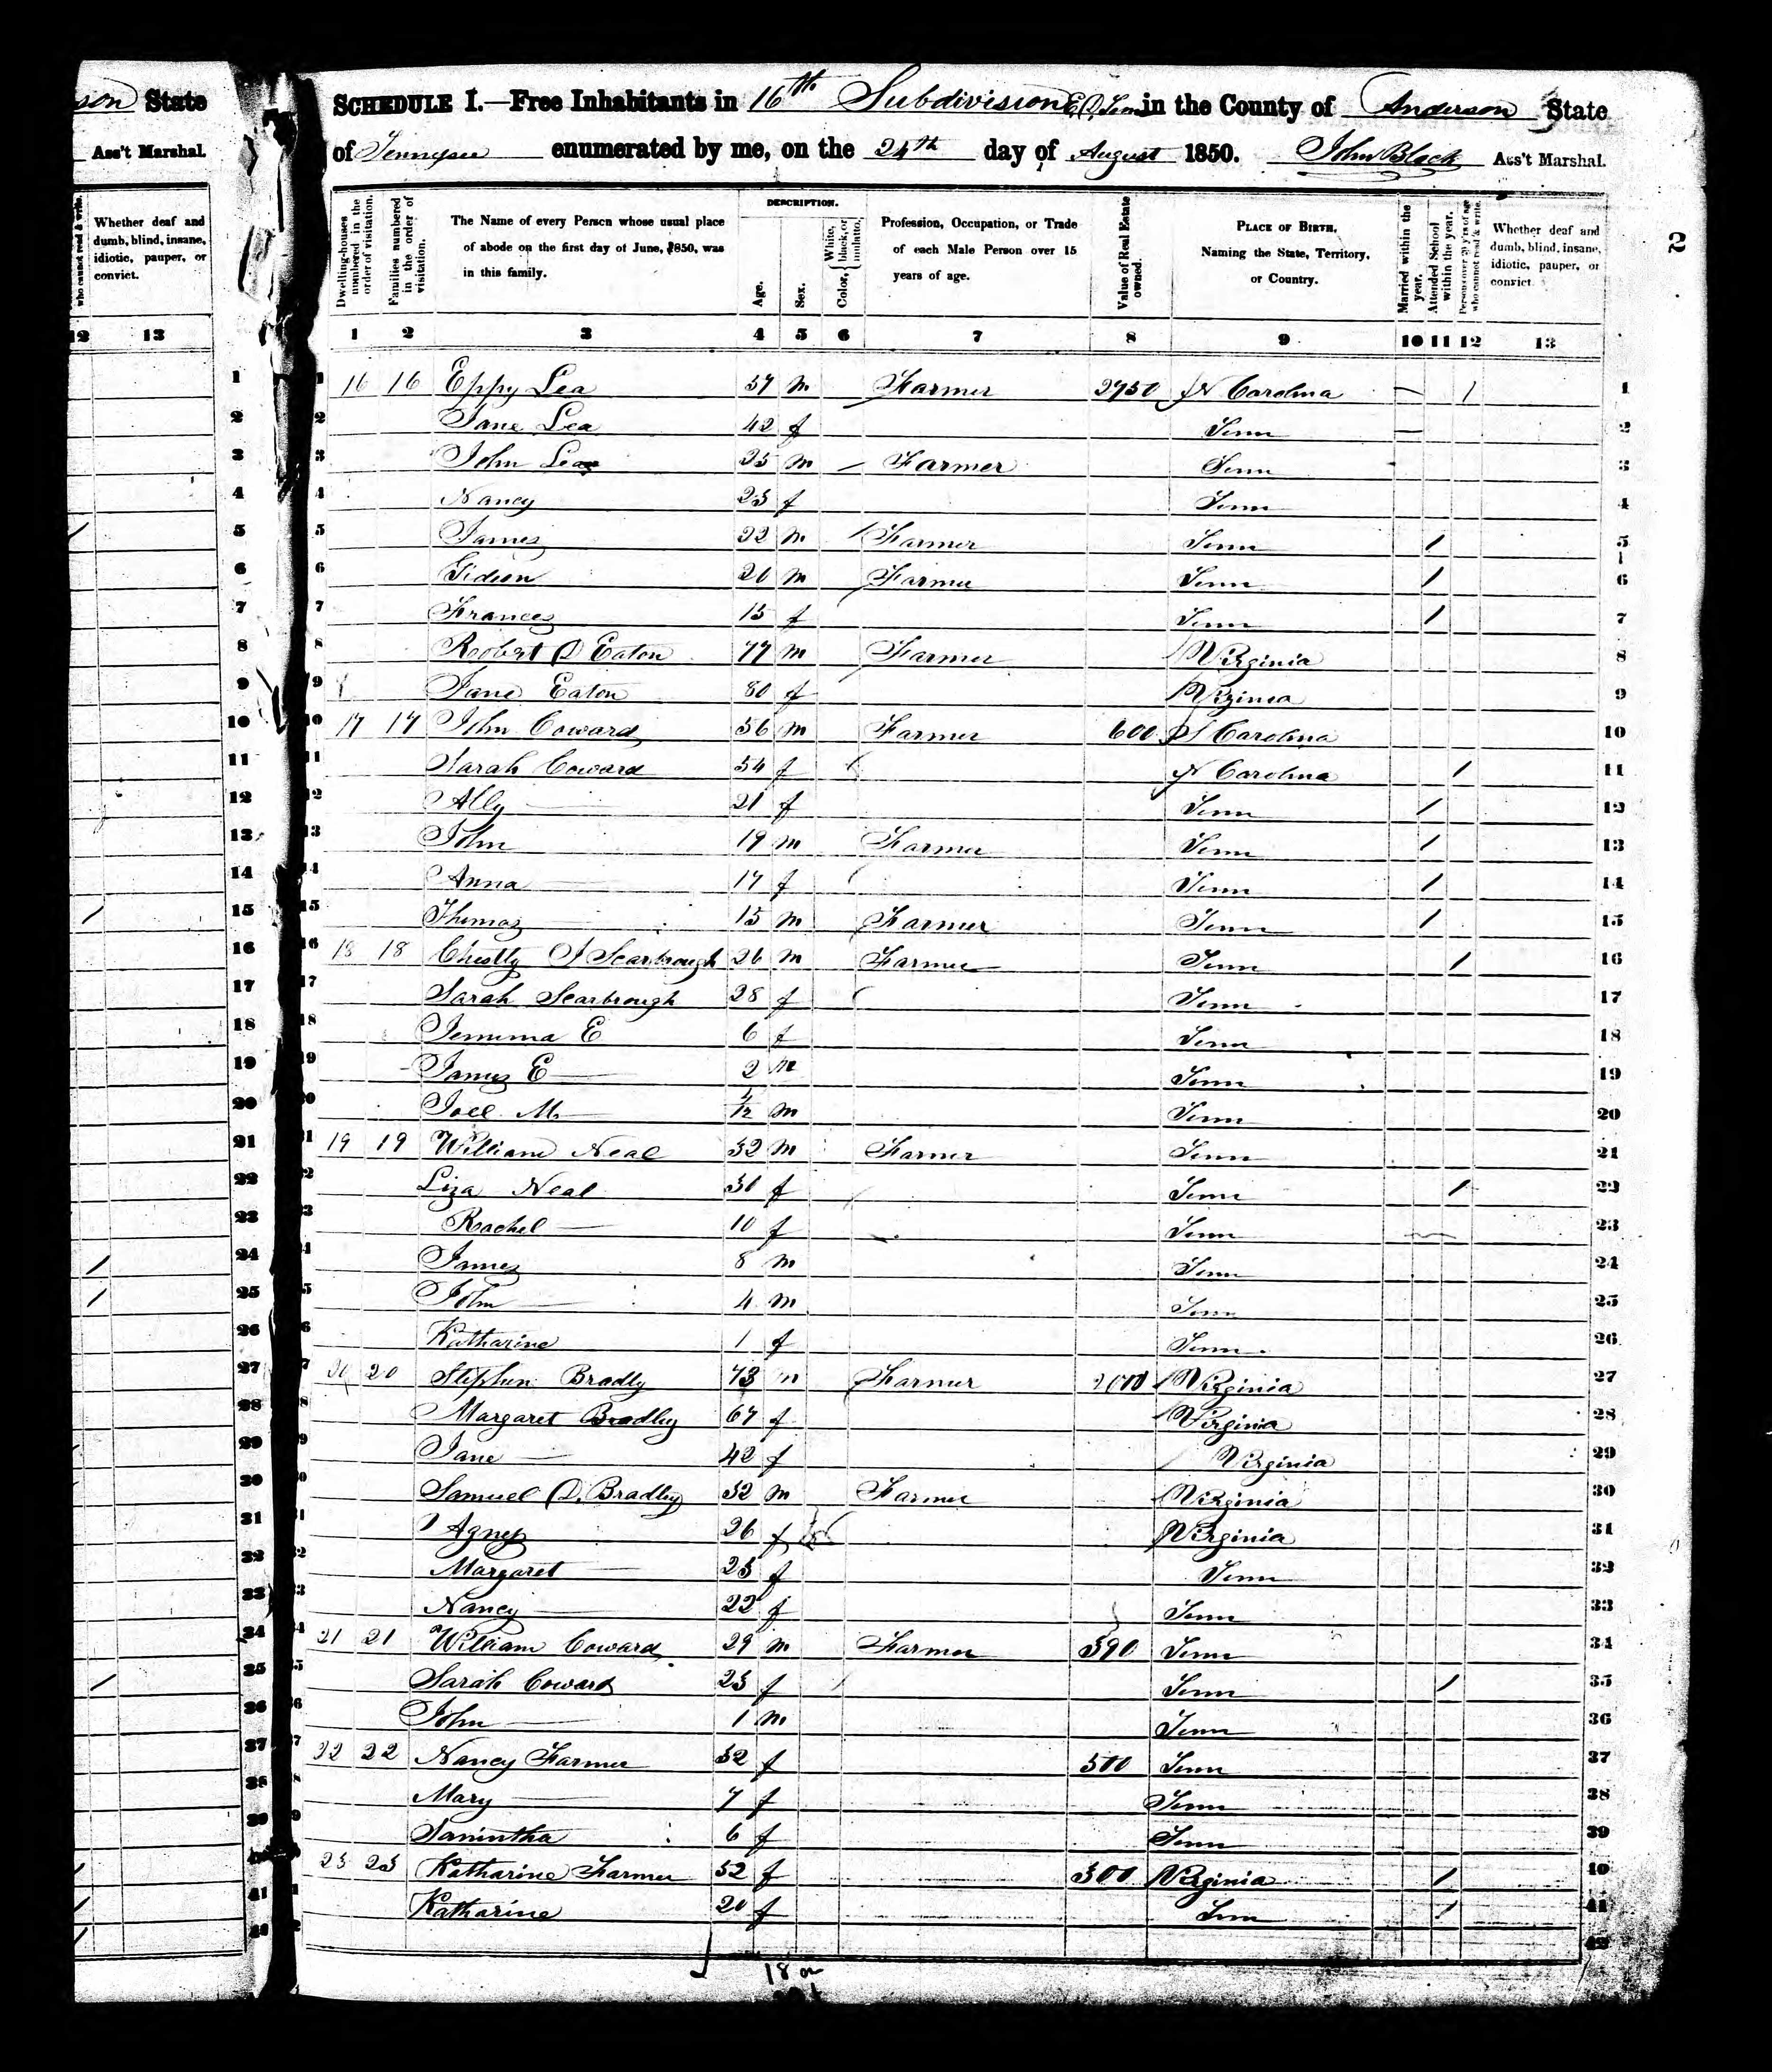 son State
Ass't Marshal.
who cannot read & write.
Whether deaf and
dumb, blind, insane,
idiotic, pauper, or
convict.
12 13
SCHEDULE I.—Free Inhabitants in 16th Subdivision E D Tenn in the County of Anderson State
of Tennessee enumerated by me, on the 24th day of August 1850. John Black Ass't Marshal.
2
Dwelling-houses numbered in the order of visitation.
Families numbered in the order of visitation.
The Name of every Person whose usual place
of abode on the first day of June, 1850, was
in this family.
DESCRIPTION.
Age.
Sex.
Color, { White, black, or mulatto.
Profession, Occupation, or Trade
of each Male Person over 15
years of age.
Value of Real Estate owned.
PLACE OF BIRTH,
Naming the State, Territory,
or Country.
Married within the year.
Attended School within the year.
Persons over 20 y'rs of age who cannot read & write.
Whether deaf and
dumb, blind, insane,
idiotic, pauper, or
convict.
1 2 3 4 5 6 7 8 9 10 11 12 13
1 16 16 Eppy Lea 57 m Farmer 2750 N Carolina / 1
2 Jane Lea 42 f Tenn 2
3 John Lea 25 m Farmer Tenn 3
4 Nancy 23 f Tenn 4
5 James 22 m Farmer Tenn / 5
6 Gideon 20 m Farmer Tenn / 6
7 Frances 15 f Tenn / 7
8 Robert D Eaton 77 m Farmer Virginia 8
9 Jane Eaton 80 f Virginia 9
10 17 17 John Coward 56 m Farmer 600 S Carolina 10
11 Sarah Coward 54 f N Carolina / 11
12 Ally 21 f Tenn / 12
13 John 19 m Farmer Tenn / 13
14 Anna 17 f Tenn / 14
15 Thomas 15 m Farmer Tenn / 15
16 18 18 Scarbrough 26 m Farmer Tenn / 16
17 Sarah Scarbrough 28 f Tenn 17
18 Jemima E 6 f Tenn 18
19 James E 2 m Tenn 19
20 Joel M m Tenn 20
21 19 19 William Neal 32 m Farmer Tenn 21
22 Liza Neal 31 f Tenn / 22
23 Rachel 10 f Tenn 23
24 James 8 m Tenn 24
25 John 4 m Tenn 25
26 Katharine 1 f Tenn 26
27 20 20 Stephen Bradly 73 m Farmer 2000 Virginia 27
28 Margaret Bradley 67 f Virginia 28
29 Jane 42 f Virginia 29
30 Samuel D. Bradley 32 m Farmer Virginia 30
31 Agness 26 f Virginia 31
32 Margaret 23 f Tenn 32
33 Nancy 22 f Tenn 33
34 21 21 William Coward 29 m Farmer 390 Tenn 34
35 Sarah Coward 23 f Tenn / 35
36 John 1 m Tenn 36
37 22 22 Nancy Farmer 32 f 500 Tenn 37
38 Mary 7 f Tenn 38
39 Samintha 6 f Tenn 39
40 23 23 Katharine Farmer 52 f 300 Virginia / 40
41 Katharine 20 f Tenn / 41
42
18 m